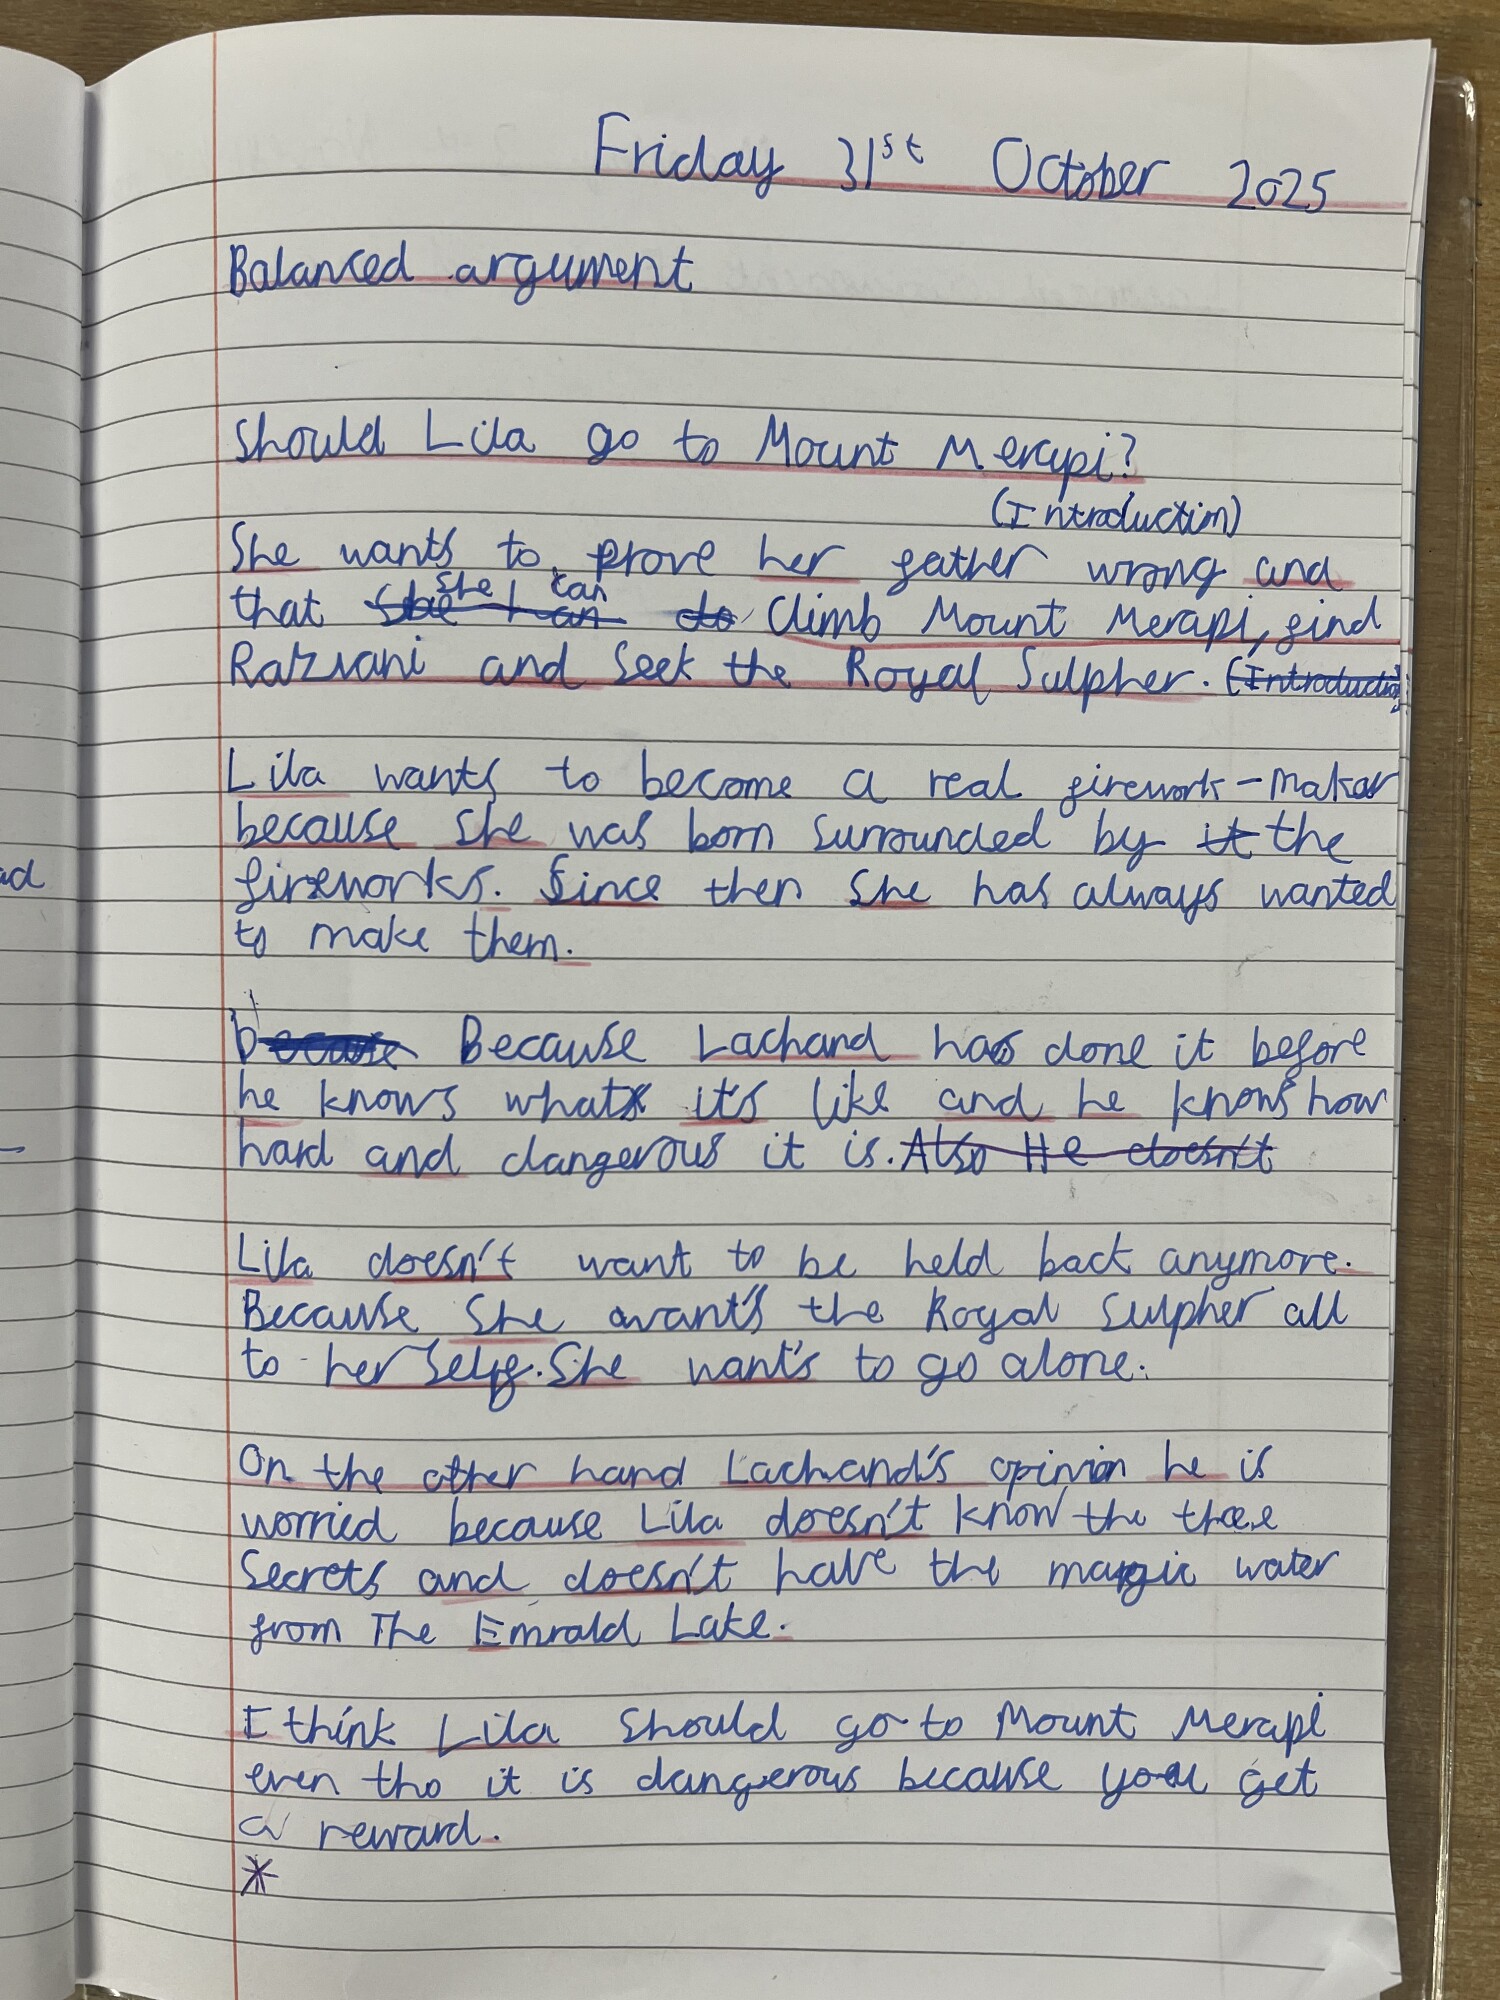 Friday 31st October 2025
Balanced argument
Should Lila go to Mount Merapi?
(Introduction)
She wants to prove her father wrong and
that she can climb Mount Merapi, find
Razvani and seek the Royal Sulpher. (Introduction)
Lila wants to become a real firework-maker
because she was born surrounded by it the
fireworks. Since then she has always wanted
to make them.
ad
because Because Lachand has done it before
he knows what it's like and he knows how
hard and dangerous it is. Also He doesn't
Lila doesn't want to be held back anymore.
Because she want's the Royal Sulpher all
to her self. She want's to go alone.
On the other hand Lachand's opinion he is
worried because Lila doesn't know the three
secrets and doesn't have the magic water
from The Emrald Lake.
I think Lila should go to Mount Merapi
even tho it is dangerous because you get
a reward.
*